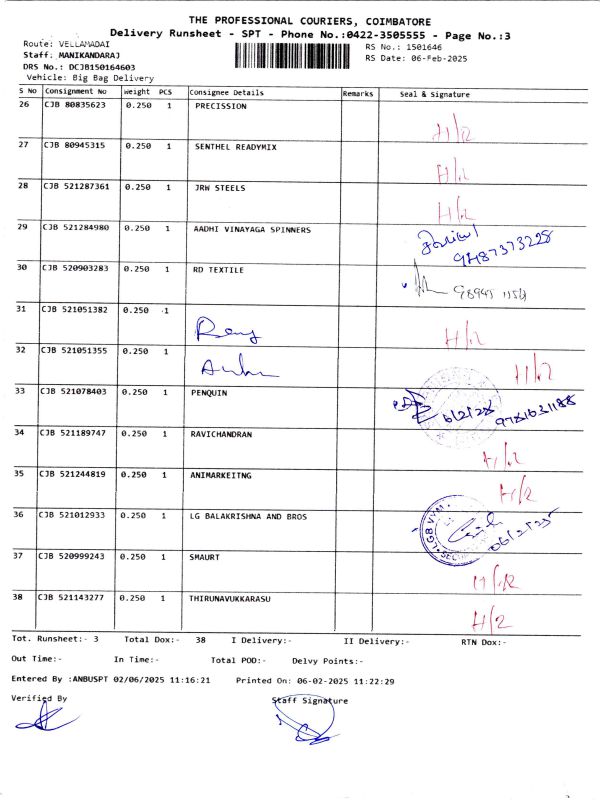 THE PROFESSIONAL COURIERS, COIMBATORE
Delivery Runsheet - SPT - Phone No.:0422-3505555 - Page No.:3
Route: VELLAMADAI
RS No.: 1501646
Staff: MANIKANDARAJ
RS Date: 06-Feb-2025
DRS No.: DCJB150164603
Vehicle: Big Bag Delivery
S No Consignment No Weight PCS Consignee Details Remarks Seal & Signature
26 CJB 80835623 0.250 1 PRECISSION
27 CJB 80945315 0.250 1 SENTHEL READYMIX
28 CJB 521287361 0.250 1 JRW STEELS
29 CJB 521284980 0.250 1 AADHI VINAYAGA SPINNERS
9487373228
30 CJB 520903283 0.250 1 RD TEXTILE
31 CJB 521051382 0.250 1
32 CJB 521051355 0.250 1
33 CJB 521078403 0.250 1 PENQUIN
34 CJB 521189747 0.250 1 RAVICHANDRAN
35 CJB 521244819 0.250 1 ANIMARKEITNG
36 CJB 521012933 0.250 1 LG BALAKRISHNA AND BROS
06/2/25
37 CJB 520999243 0.250 1 SMAURT
38 CJB 521143277 0.250 1 THIRUNAVUKKARASU
Tot. Runsheet:- 3 Total Dox:- 38 I Delivery:- II Delivery:- RTN Dox:-
Out Time:- In Time:- Total POD:- Delvy Points:-
Entered By :ANBUSPT 02/06/2025 11:16:21 Printed On: 06-02-2025 11:22:29
Verified By Staff Signature